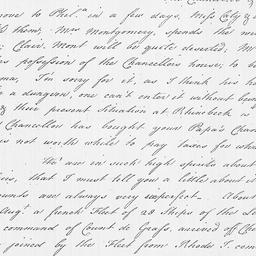 move to Phil.a in a few days, Miss Ety &
them; Mrs Montgomery, spends the
Clair. Mont will be quite deserted; M
possession of the Chancellors house; to b
ma, I'm sorry for it, as I think his h
a dungeon, one can't enter it without be
& their present situation at Rhinebeck is
Chancellor has bought your Papa's Cha
is not worth while to pay taxes for wha
We are in such high spirits about
, that I must tell you a little about it
ounts are always very imperfect— About
Aug.t a french Fleet of 28 Ships of the L
command of Count de Grass, arrived off Ch
joined by the Fleet from Rhode I. com